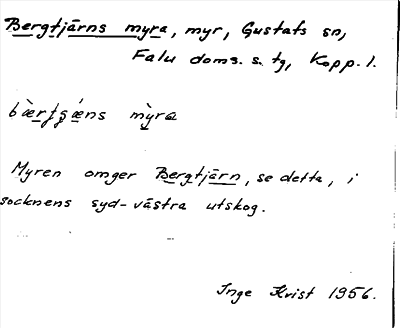 Bergtjärns myra, myr, Gustafs sn,
Falu doms. s. tg, Kopp. l.
myra
Myren omger Bergtjärn, se detta, i
socknens syd-västra utskog.
Inge Kvist 1956.